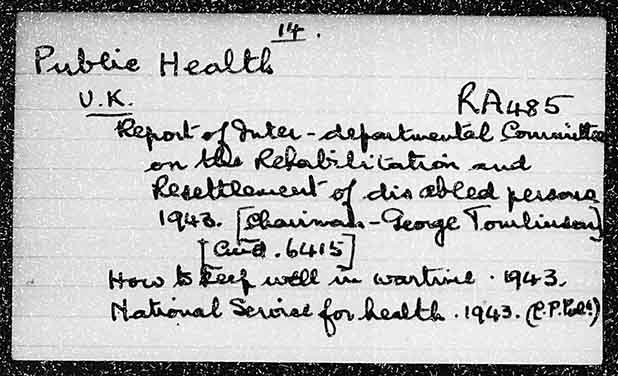 14.
Public Health
U.K. RA485
Report of Inter-departmental Committee
on the Rehabilitation and
Resettlement of disabled persons
1943. [Chairman - George Tomlinson]
[Cmd. 6415]
How to keep well in wartime. 1943.
National Service for health. 1943. (L.P. Publ.)